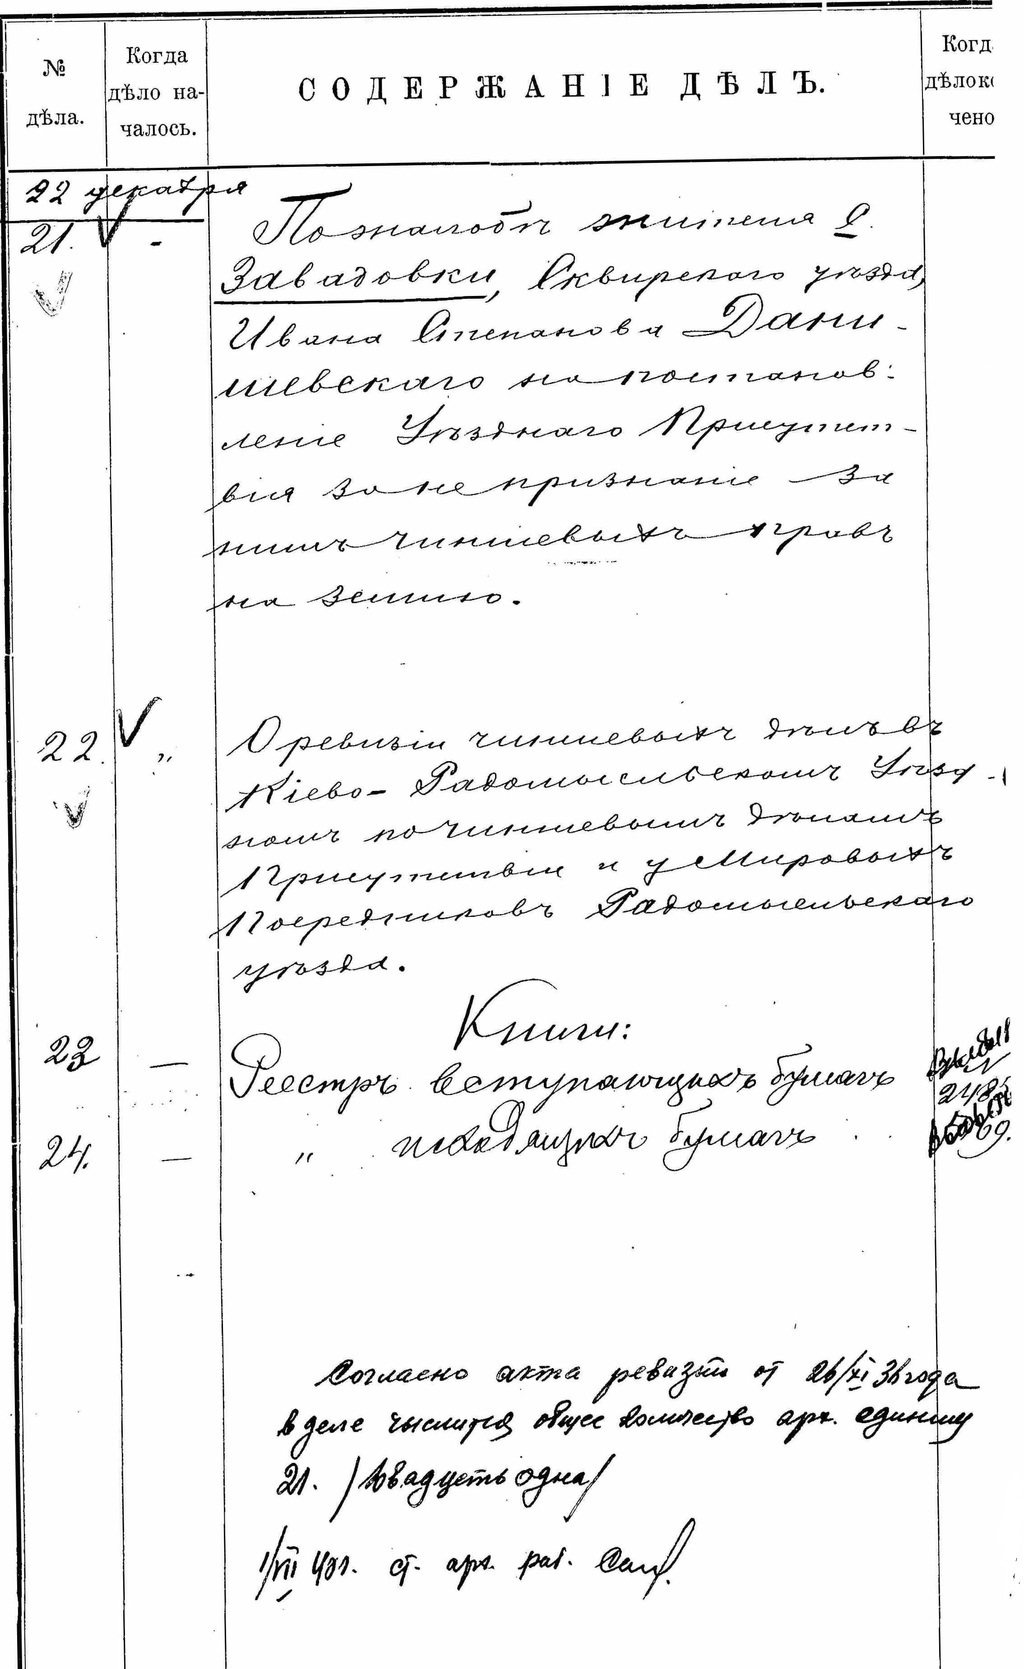 № дѣла.
Когда дѣло на-
чалось.
СОДЕРЖАНІЕ ДѢЛЪ.
Когд
дѣлоко
чено
22 декабря
21. -
По жалобѣ жителя с.
Завадовки, Сквирскаго уѣзда,
Ивана Степанова Дани-
шевскаго на постанов-
леніе Уѣзднаго Присутст-
вія за непризнаніе за
нимъ чиншевыхъ правъ
на землю.
22. „
О ревизіи чиншевыхъ дѣлъ въ
Кіево-Радомысльскомъ Уѣзд-
номъ по чиншевымъ дѣламъ
Присутствіи и у Мировыхъ
Посредниковъ Радомысльскаго
уѣзда.
Книги:
23 — Реестръ вступающихъ бумагъ
24. — „ исходящихъ бумагъ
Согласно акта ревизии от 26/XI 36 года
в деле числится общее количество арх. единиц
21. /двадцать одна/
1/VII 41г. ст. арх. раб.